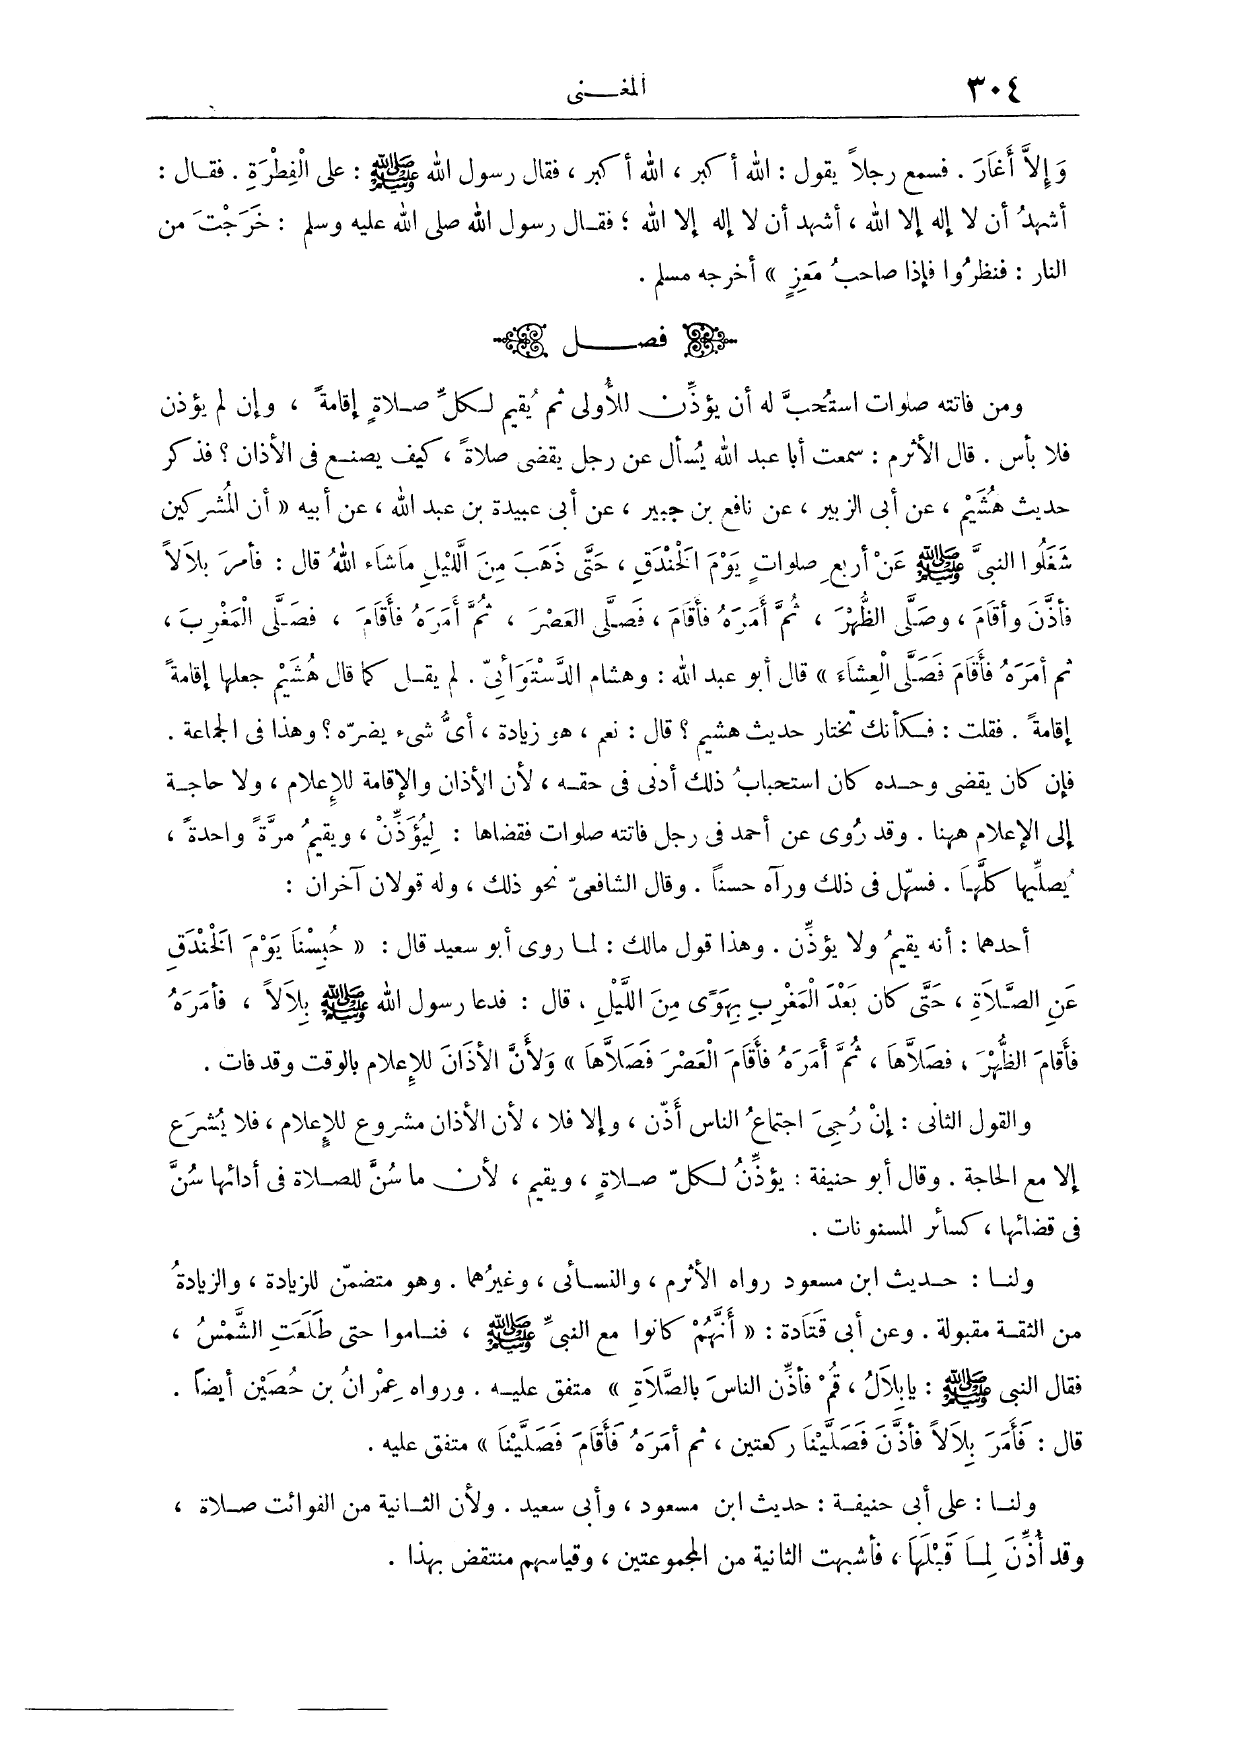 ٣٠٤ المغـــنى
وَإِلاَّ أَغَارَ . فسمع رجلاً يقول : الله أكبر ، الله أكبر ، فقال رسول الله ﷺ : على الْفِطْرَةِ . فقـال :
أشهدُ أن لا إله إلا الله ، أشهد أن لا إله إلا الله ؛ فقـال رسول الله صلى الله عليه وسلم : خَرَجْتَ من
النار : فنظرُوا فإذا صاحبُ مَعَزٍ » أخرجه مسلم .
فصــــل
ومن فاتته صلوات استُحبَّ له أن يؤذِّن للأُولى ثم يُقيم لـكلِّ صـلاةٍ إقامةً ، وإن لم يؤذن
فلا بأس . قال الأثرم : سمعت أبا عبد الله يُسأل عن رجل يقضى صلاةً ، كيف يصنـع فى الأذان ؟ فذكر
حديث هُشَيْم ، عن أبى الزبير ، عن نافع بن جبير ، عن أبى عبيدة بن عبد الله ، عن أبيه « أن المُشركين
شَغَلُوا النبىَّ ﷺ عَنْ أربعِ صلواتٍ يَوْمَ الْخَنْدَقِ ، حَتَّى ذَهَبَ مِنَ الَّليْلِ مَاشَاء اللهُ قال : فأمرَ بِلاَلاً
فأذَّنَ وأقَامَ ، وصَلَّى الظُّهْرَ ، ثُمَّ أَمَرَهُ فأقَامَ ، فَصَلَّى العَصْرَ ، ثُمَّ أَمَرَهُ فأَقَامَ ، فصَلَّى الْمَغْرِبَ ،
ثم أمَرَهُ فأَقَامَ فَصَلَّى الْعِشَاءَ » قال أبو عبد الله : وهشام الدَّسْتَوَائىّ . لم يقـل كما قال هُشَيْم جعلها إقامةً
إقامةً . فقلت : فـكأنك تختار حديث هشيم ؟ قال : نعم ، هو زيادة ، أىُّ شىء يضرّه ؟ وهذا فى الجماعة .
فإن كان يقضى وحـده كان استحبابُ ذلك أدنى فى حقـه ، لأن الأذان والإقامة للإعلام ، ولا حاجـة
إلى الإعلام ههنا . وقد رُوى عن أحمد فى رجل فاتته صلوات فقضاها : لِيُؤَذِّنْ ، ويقيمُ مرَّةً واحدةً ،
يُصلِّيها كلَّهـا . فسهّل فى ذلك ورآه حسناً . وقال الشافعىّ نحو ذلك ، وله قولان آخران :
أحدهما : أنه يقيمُ ولا يؤذِّن . وهذا قول مالك : لمـا روى أبو سعيد قال : « حُبِسْنَا يَوْمَ الْخَنْدَقِ
عَنِ الصَّلاَةِ ، حَتَّى كان بَعْدَ الْمَغْرِبِ بِهَوًى مِنَ اللَّيْلِ . قال : فدعا رسول الله ﷺ بِلاَلاً ، فأمَرَهُ
فأَقامَ الظُّهْرَ ، فصَلاَّهَا ، ثُمَّ أَمَرَهُ فأَقَامَ الْعَصْرَ فَصَلاَّهَا » وَلأنَّ الأذَانَ للإعلام بالوقت وقد فات .
والقول الثانى : إنْ رُجِىَ اجتماعُ الناس أَذّن ، وإلا فلا ، لأن الأذان مشروع للإعلام ، فلا يُشرَع
إلا مع الحاجة . وقال أبو حنيفة : يؤذِّنُ لـكلّ صـلاةٍ ، ويقيم ، لأن ما سُنَّ للصـلاة فى أدائها سُنَّ
فى قضائها ، كسأئر المسنونات .
ولنـا : حـديث ابن مسعود رواه الأثرم ، والنسـائى ، وغيرُهما . وهو متضمّن للزيادة ، والزيادةُ
من الثقـة مقبولة . وعن أبى قَتَادة : « أَنَّهُمْ كانوا مع النبىِّ ﷺ ، فنـاموا حتى طَلَعَتِ الشَّمْسُ ،
فقال النبى ﷺ : يابِلاَلُ ، قُمْ فأذِّن الناسَ بالصَّلاَةِ » متفق عليـه . ورواه عِمْرانُ بن حُصَيْن أيضاً .
قال : فَأَمَرَ بِلاَلاً فأذَّنَ فَصَلَّيْنَا ركعتين ، ثم أمَرَهُ فَأَقَامَ فَصَلَّيْنَا » متفق عليه .
ولنـا : على أبى حنيفـة : حديث ابن مسعود ، وأبى سعيد . ولأن الثـانية من الفوائت صـلاة ،
وقد أُذِّنَ لِمـا قَبْلَهَا ، فأشبهت الثانية من المجموعتين ، وقياسهم منتقض بهذا .